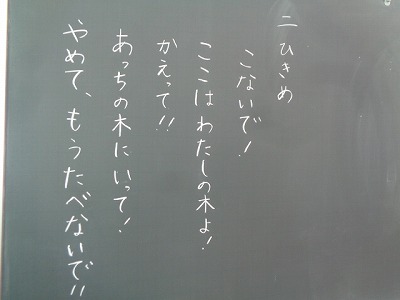 二ひきめ
こないで!
ここはわたしの木よ!
かえって!!
あっちの木にいって!
やめて、もうたべないで!!